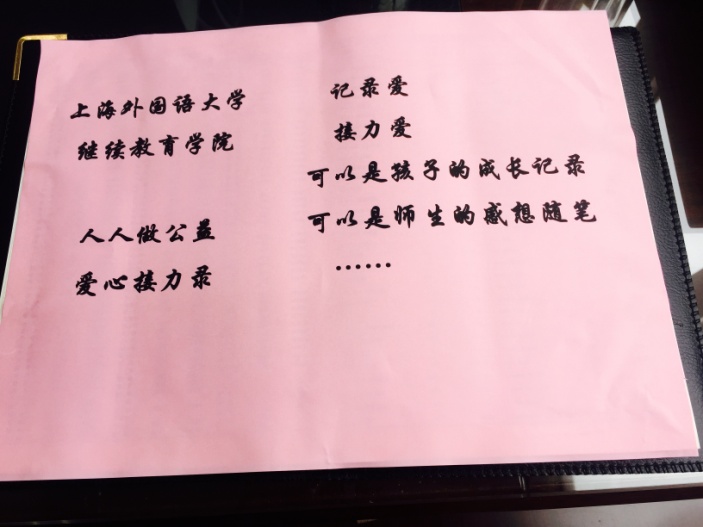 上海外国语大学
继续教育学院
人人做公益
爱心接力录
记录爱
接力爱
可以是孩子的成长记录
可以是师生的感想随笔
......